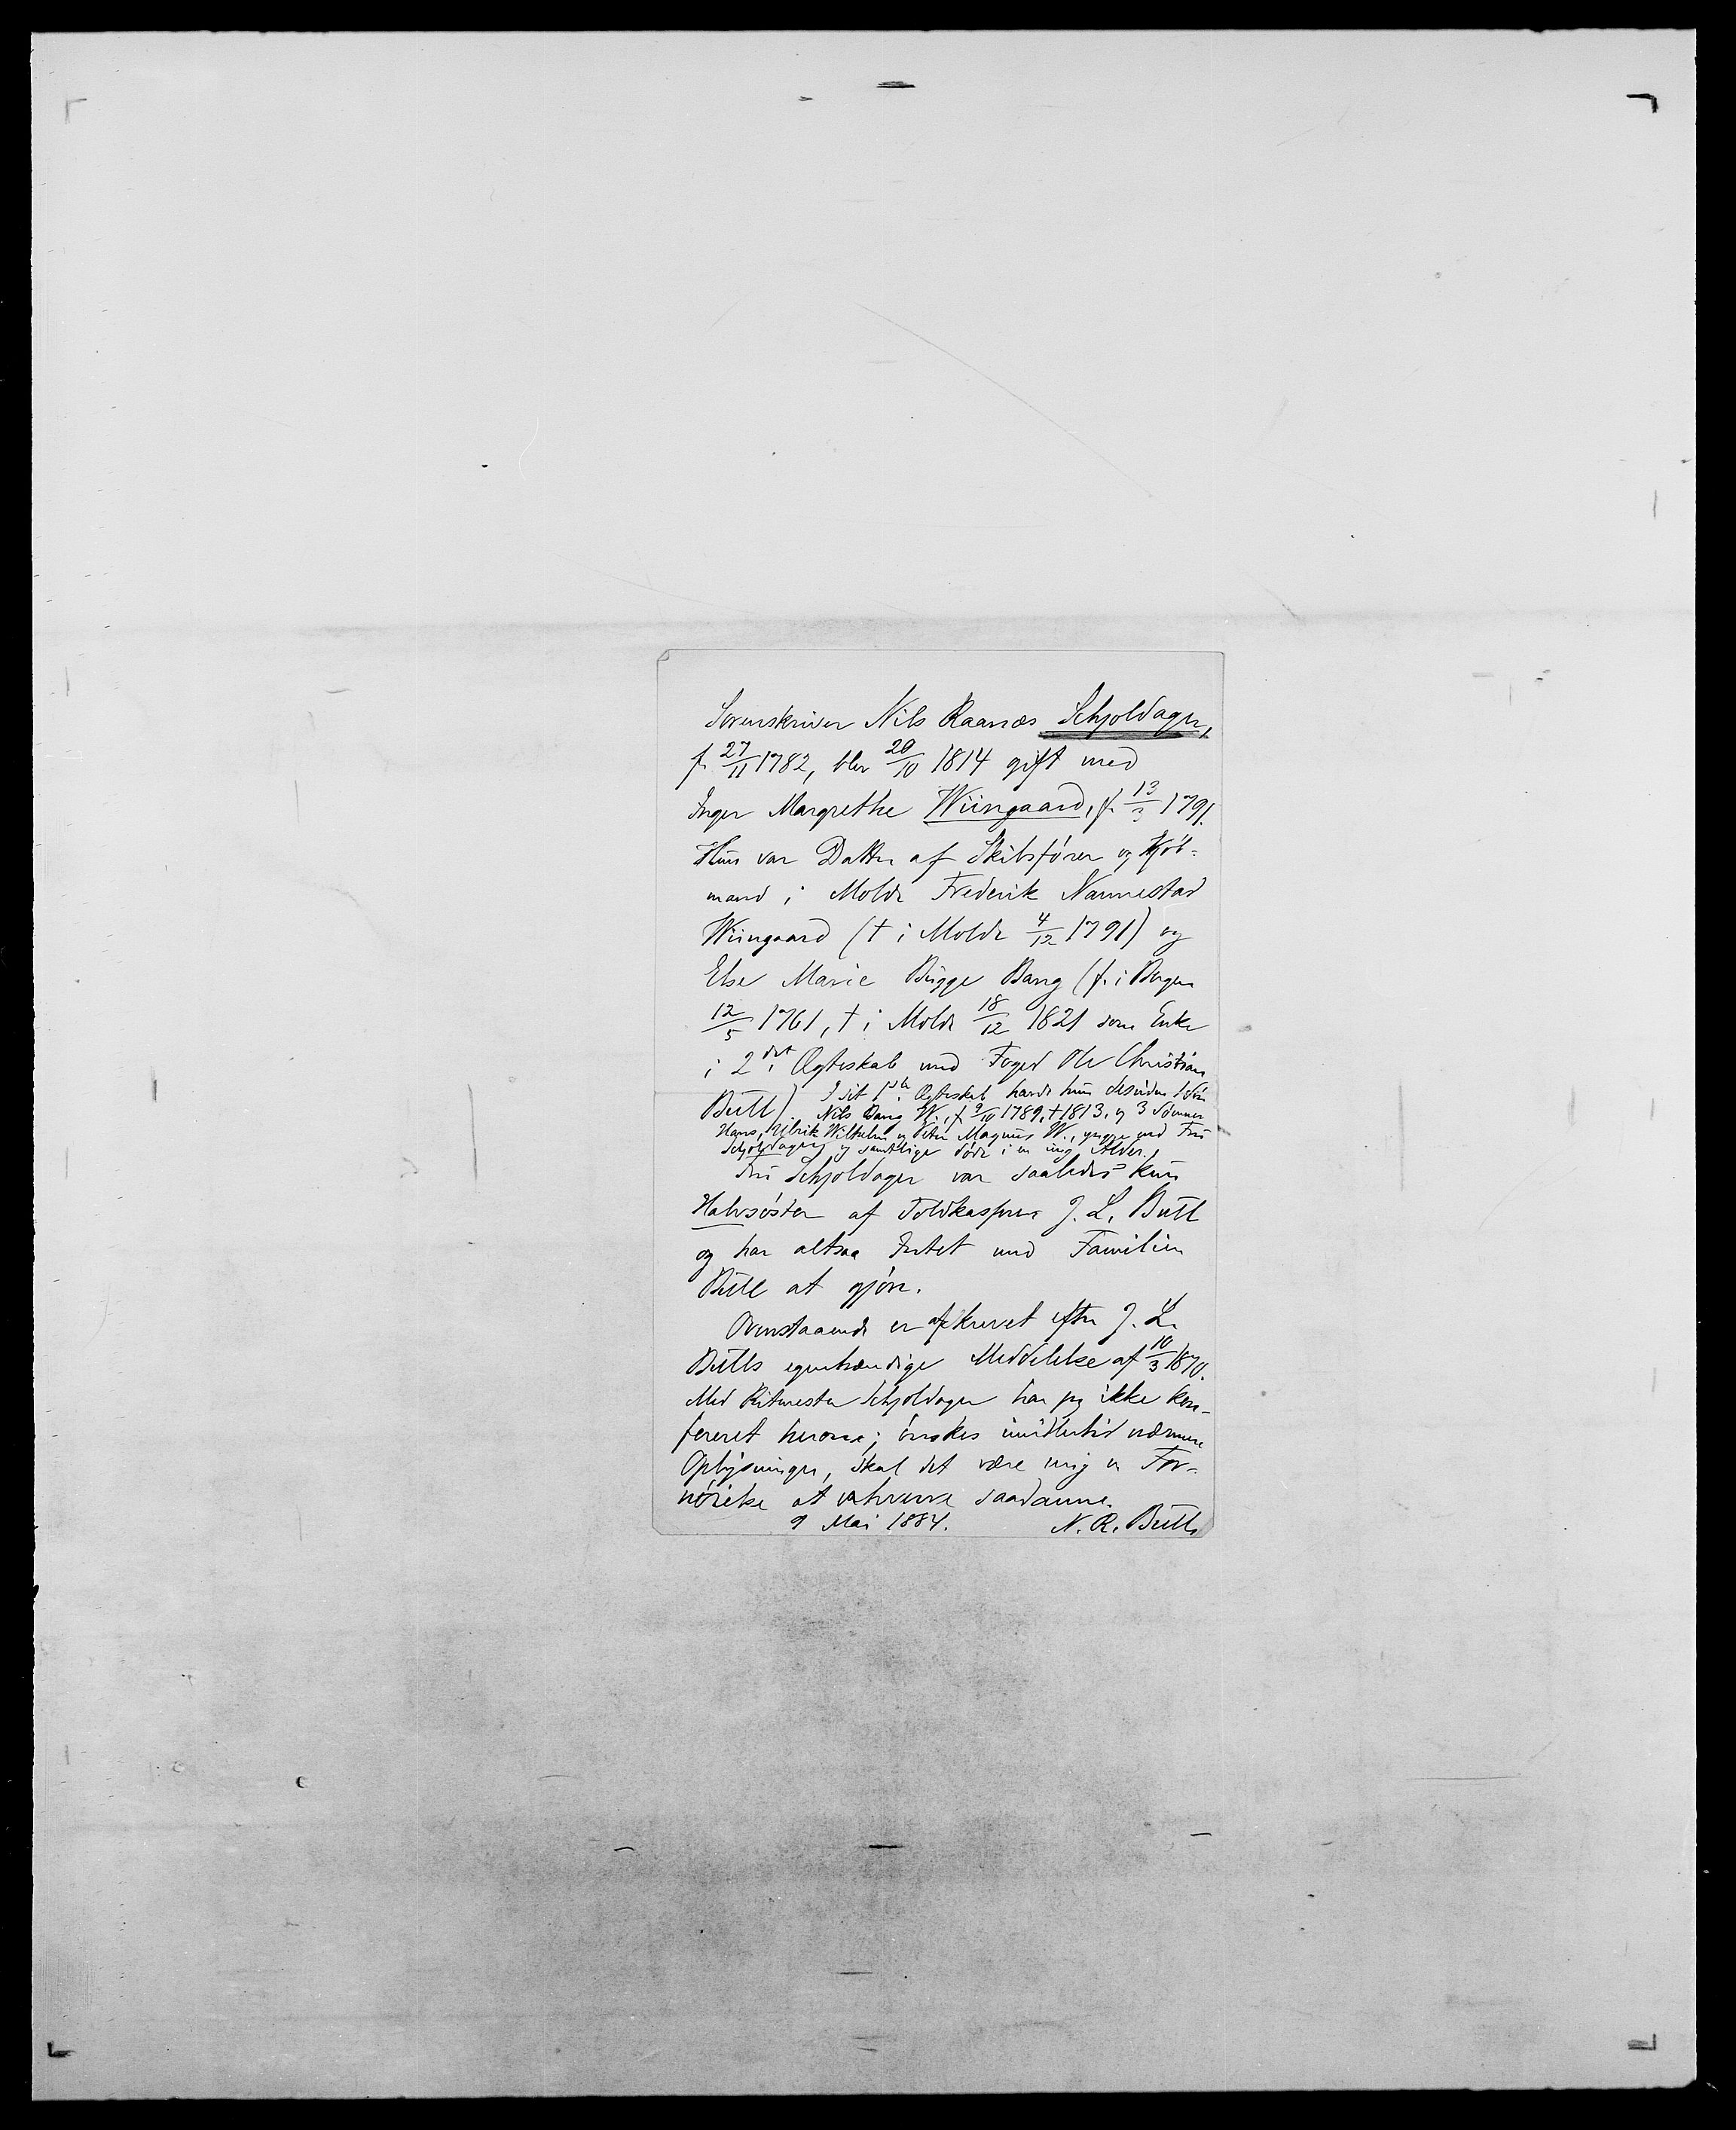 Sorenskriver Nils Raanæs Schjoldager,
f. 27/11 1782, blev 20/10 1814 gift med
Inger Margrethe Wiingaard, f. 13/3 1791.
Hun var Datter af Skibsfører og Kjøb-
mand i Molde Frederik Nannestad
Wiingaard († i Molde 4/12 1791) og
Else Marie Bugge Bang (f. i Bergen
12/5 1761, † i Molde 18/12 1821 som Enke
i 2det Ægteskab med Foged Ole Christian
Bull). I sit 1ste Ægteskab havde hun desuden 1 Søn
Nils Bang W., f. 9/10 1789, † 1813, og 3 Sønner
Hans, Ulrik Wilhelm og Peter Magnus W., yngre end Fru
Schjoldager, og samtlige døde i en ung Alder.
Fru Schjoldager var saaledes kun
Halvsøster af Toldkasserer J. L. Bull
og har altsaa Intet med Familien
Bull at gjøre.
Ovenstaaende er afskrevet efter J. L.
Bulls egenhændige Meddelelse af 10/3 1870.
Med Ritmester Schjoldager har jeg ikke kon-
fereret herom; ønskes imidlertid nærmere
Oplysninger, skal det være mig en For-
nøielse at erhverve saadanne.
9 Mai 1884. N. R. Bull